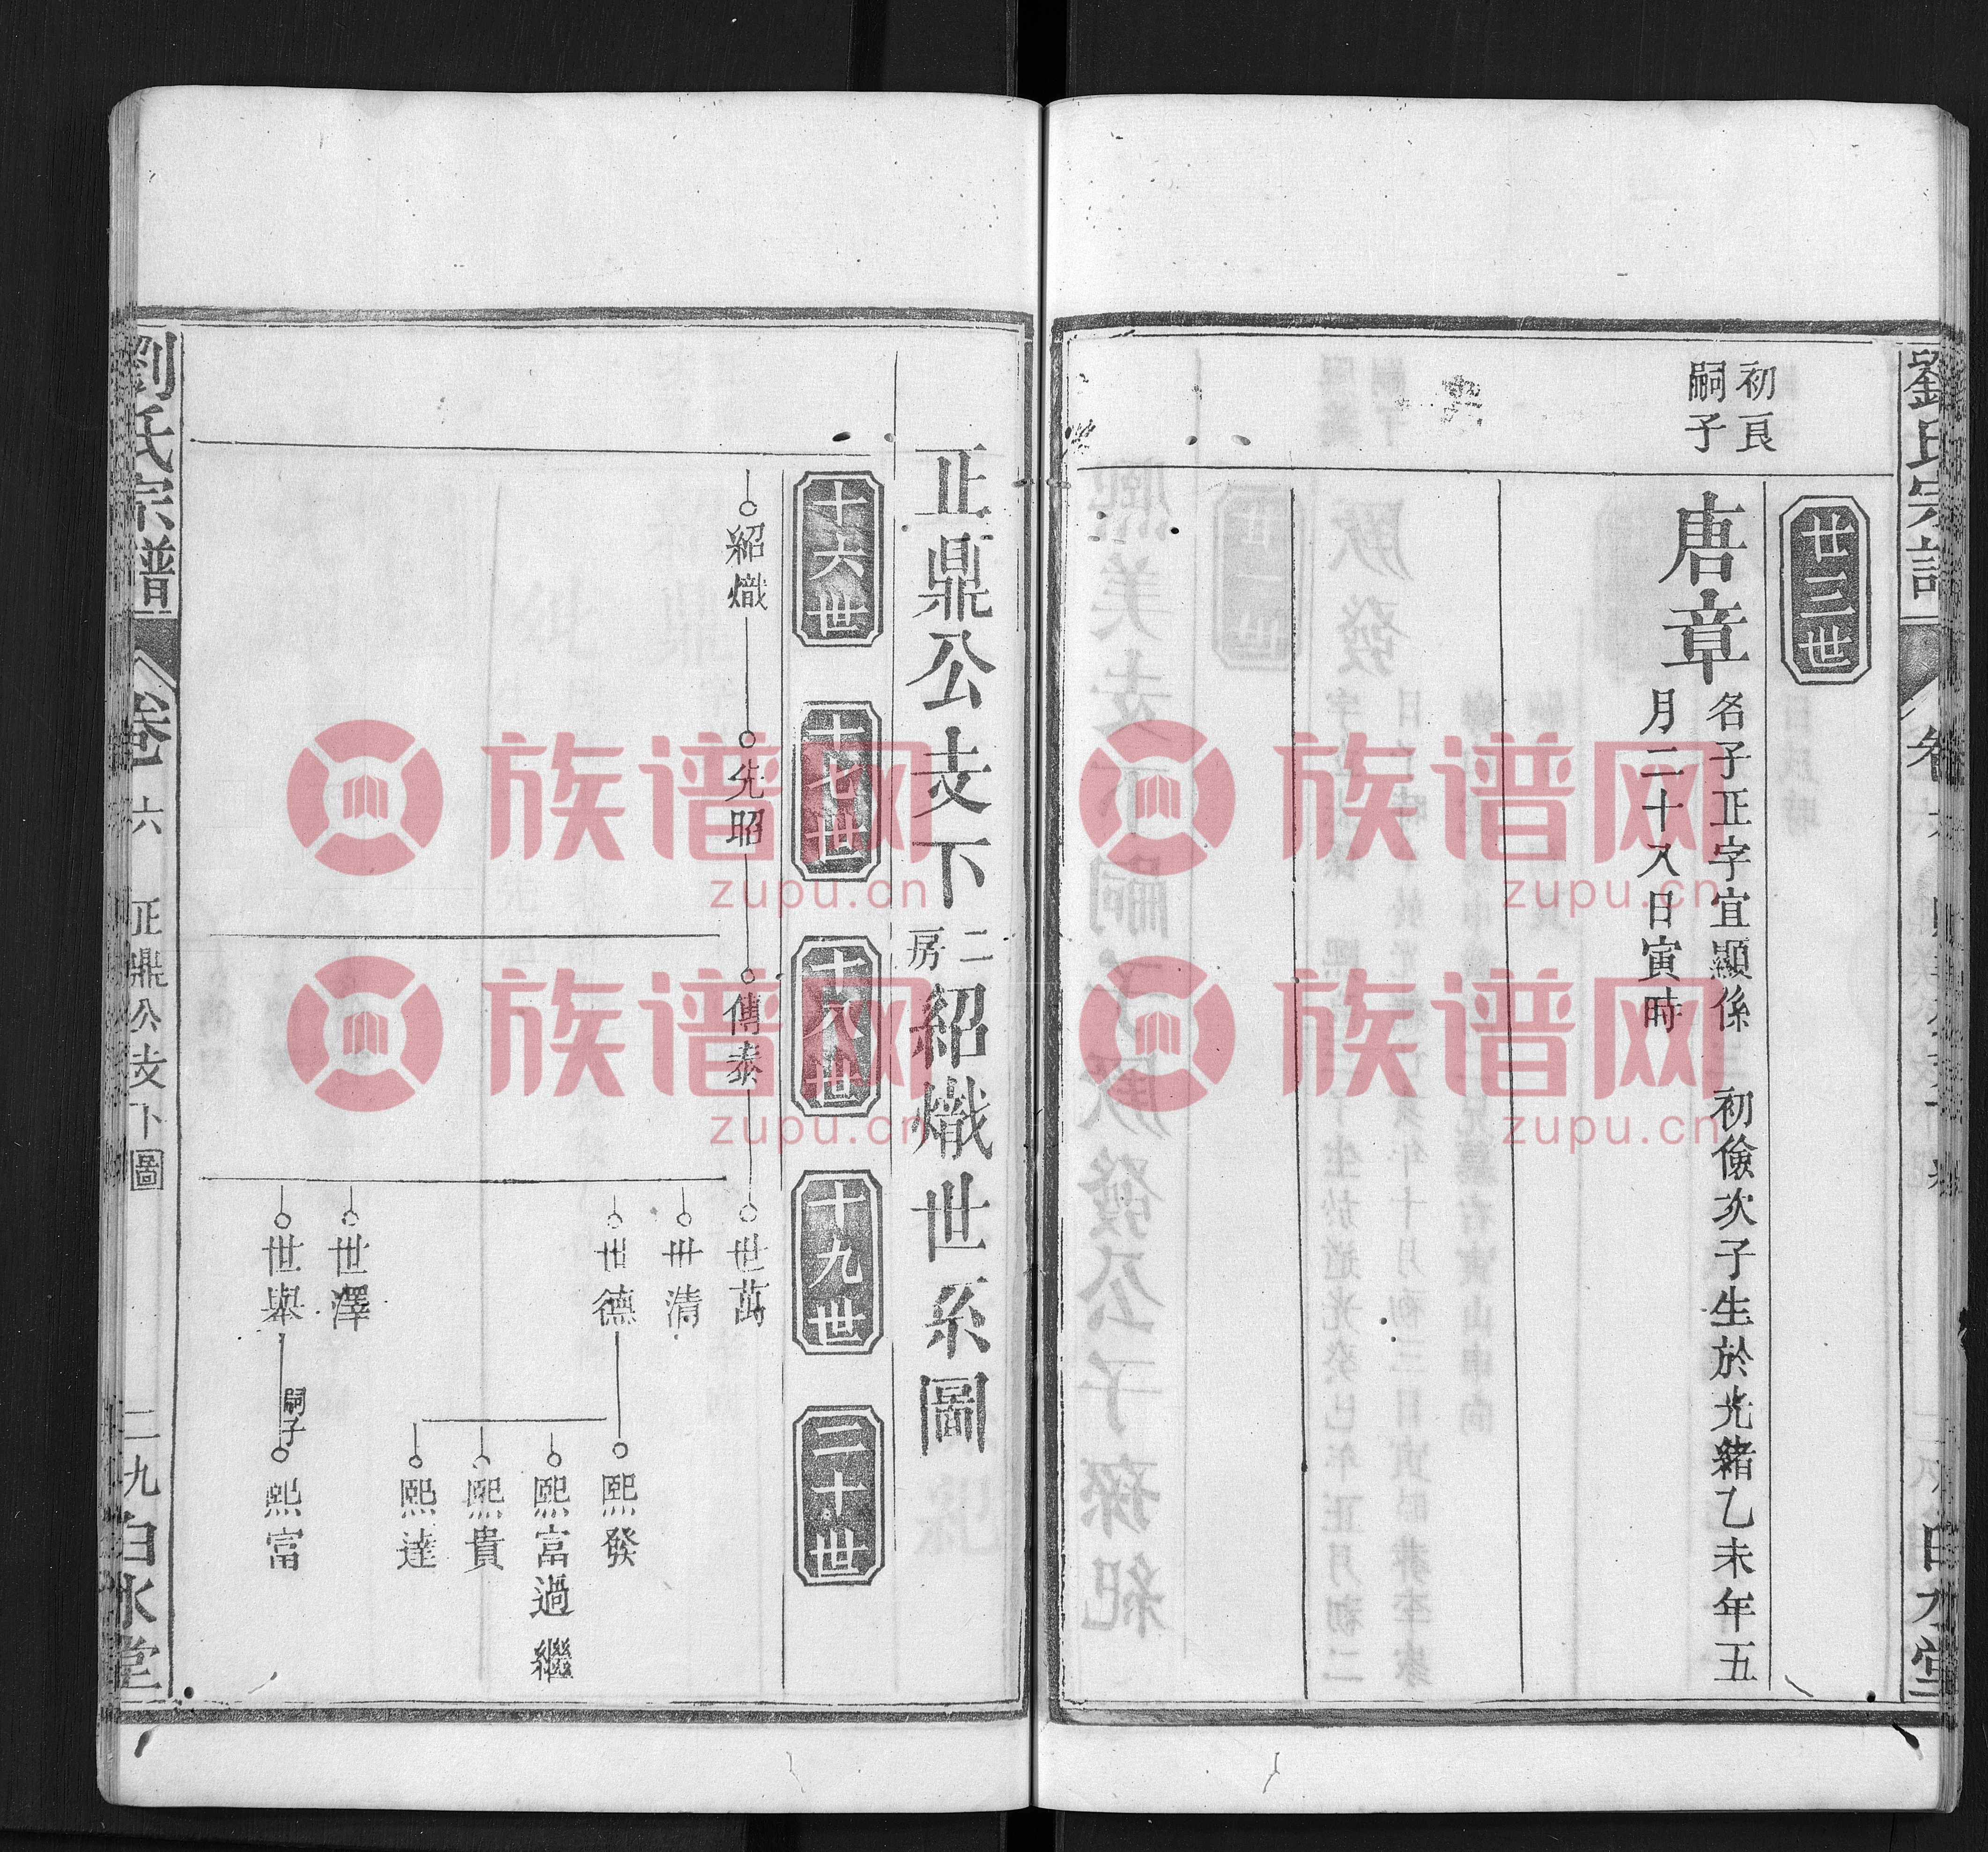 劉氏宗譜
白水堂
廿三世
初良
嗣子
唐章
名子正字宜顯係 初儉次子生於光緒乙未年五
月二十八日寅時
正鼎公支下二房紹熾世系圖
十六世
十七世
十八世
十九世
二十世
紹熾
先昭
傳泰
世萬
世清
世德
熙發
熙富過繼
熙貴
熙達
世澤
世舉
嗣子
熙富
劉氏宗譜
卷六
正鼎公支下圖
二九
白水堂
族谱网
zupu.cn
族谱网
zupu.cn
族谱网
zupu.cn
族谱网
zupu.cn